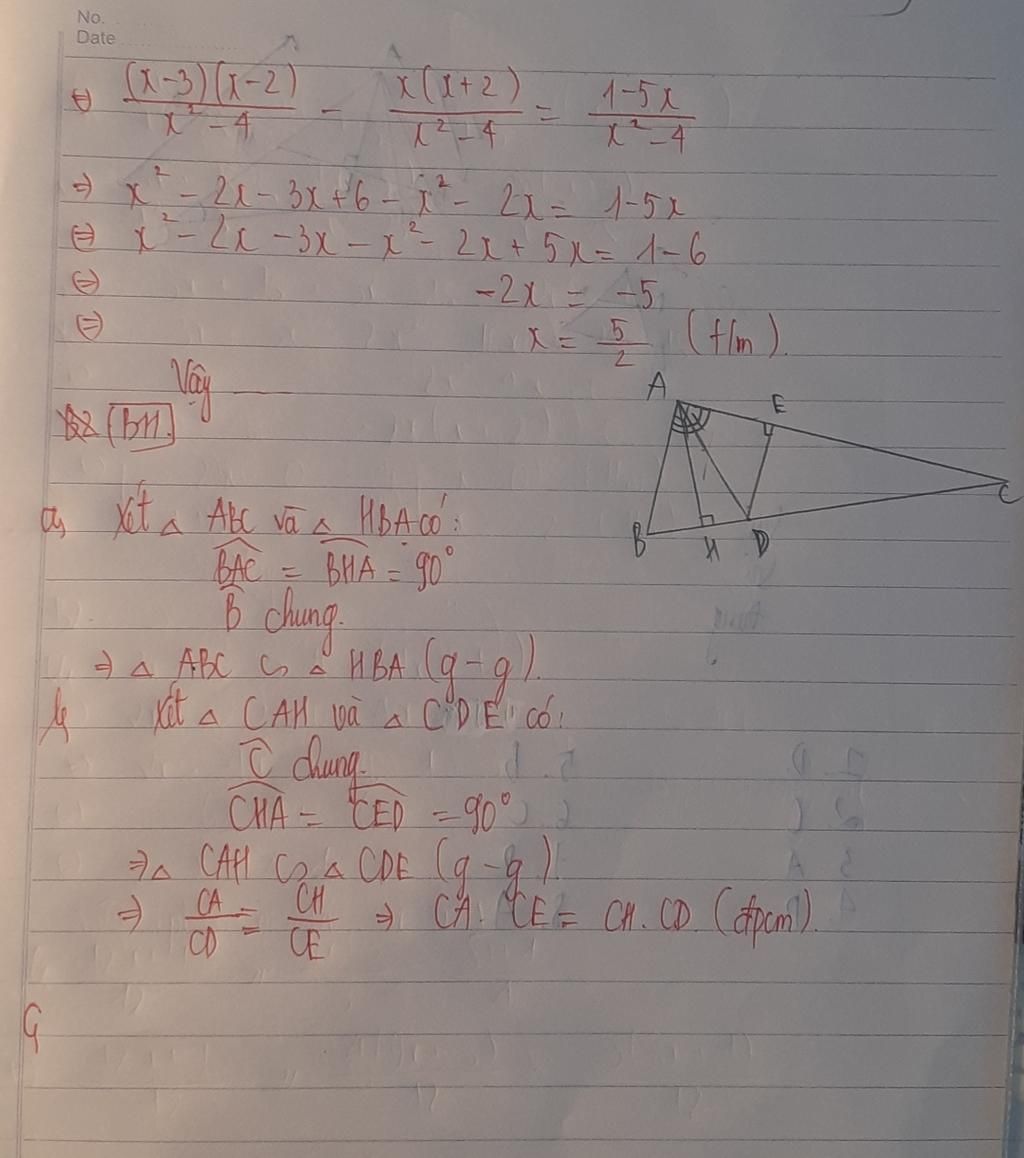 No.
Date
⇔ (x-3)(x-2)/x²-4 - x(x+2)/x²-4 = 1-5x/x²-4
⇒ x² - 2x - 3x + 6 - x² - 2x = 1-5x
⇔ x² - 2x - 3x - x² - 2x + 5x = 1-6
⇔ -2x = -5
⇔ x = 5/2 (t/m).
Vậy
A
E
B
H
D
C
a, Xét △ ABC và △ HBA có:
BAC = BHA = 90°
B chung.
⇒ △ ABC ∽ △ HBA (g-g).
b, Xét △ CAH và △ CDE có:
C chung.
CHA = CED = 90°
⇒ △ CAH ∽ △ CDE (g-g).
⇒ CA/CD = CH/CE ⇒ CA. CE = CH. CD (đpcm).